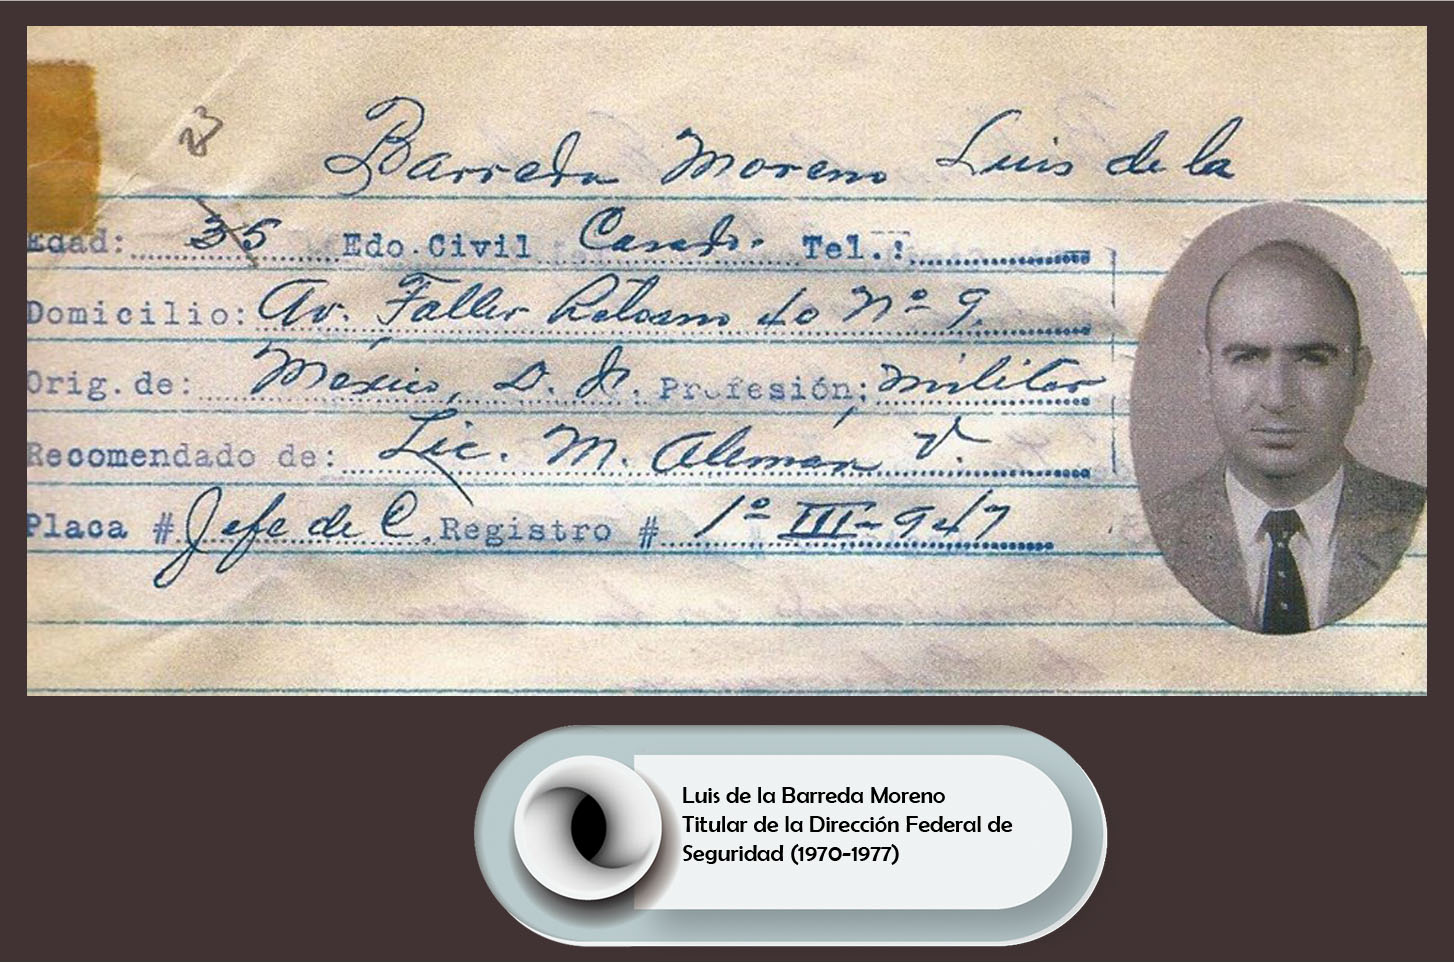 23
Barreda Moreno Luis de la
Edad: 35 Edo.Civil Casado. Tel.:
Domicilio: Av. Taller Retorno No 9.
Orig.de: México, D. F. Profesión; militar
Recomendado de: Lic. M. Alemán V.
Placa # Jefe de C. Registro # 1º III-947
Luis de la Barreda Moreno
Titular de la Dirección Federal de
Seguridad (1970-1977)